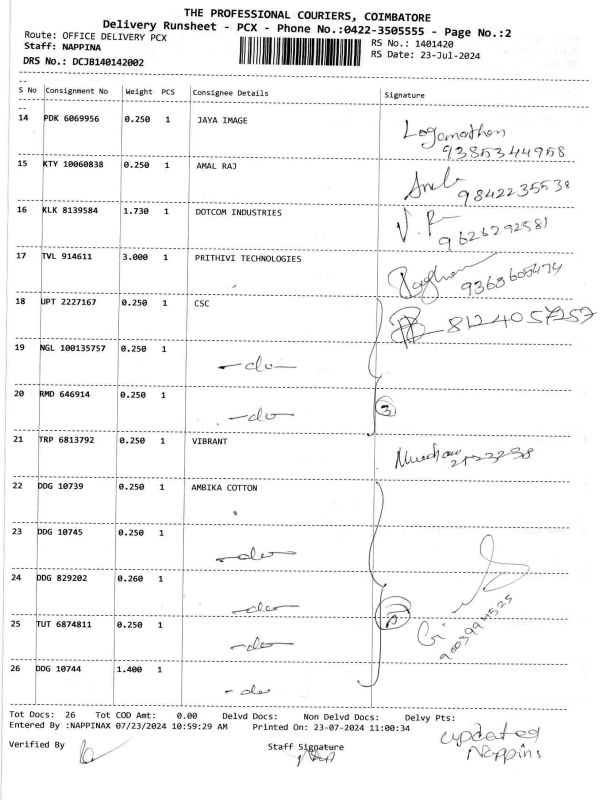 THE PROFESSIONAL COURIERS, COIMBATORE
Delivery Runsheet - PCX - Phone No.:0422-3505555 - Page No.:2
Route: OFFICE DELIVERY PCX RS No.: 1401420
Staff: NAPPINA RS Date: 23-Jul-2024
DRS No.: DCJB140142002
S No Consignment No Weight PCS Consignee Details Signature
14 PDK 6069956 0.250 1 JAYA IMAGE Loganathan
9385344958
15 KTY 10060838 0.250 1 AMAL RAJ
9842235538
16 KLK 8139584 1.730 1 DOTCOM INDUSTRIES
9626292581
17 TVL 914611 3.000 1 PRITHIVI TECHNOLOGIES
9363600474
18 UPT 2227167 0.250 1 CSC 8124057257
19 NGL 100135757 0.250 1
-do-
20 RMD 646914 0.250 1
-do- 3
21 TRP 6813792 0.250 1 VIBRANT
22 DDG 10739 0.250 1 AMBIKA COTTON
23 DDG 10745 0.250 1
-do-
24 DDG 829202 0.260 1
-do-
25 TUT 6874811 0.250 1
-do-
26 DDG 10744 1.400 1
-do-
Tot Docs: 26 Tot COD Amt: 0.00 Delvd Docs: Non Delvd Docs: Delvy Pts:
Entered By :NAPPINAX 07/23/2024 10:59:29 AM Printed On: 23-07-2024 11:00:34
Verified By Staff Signature
updated
Nappins